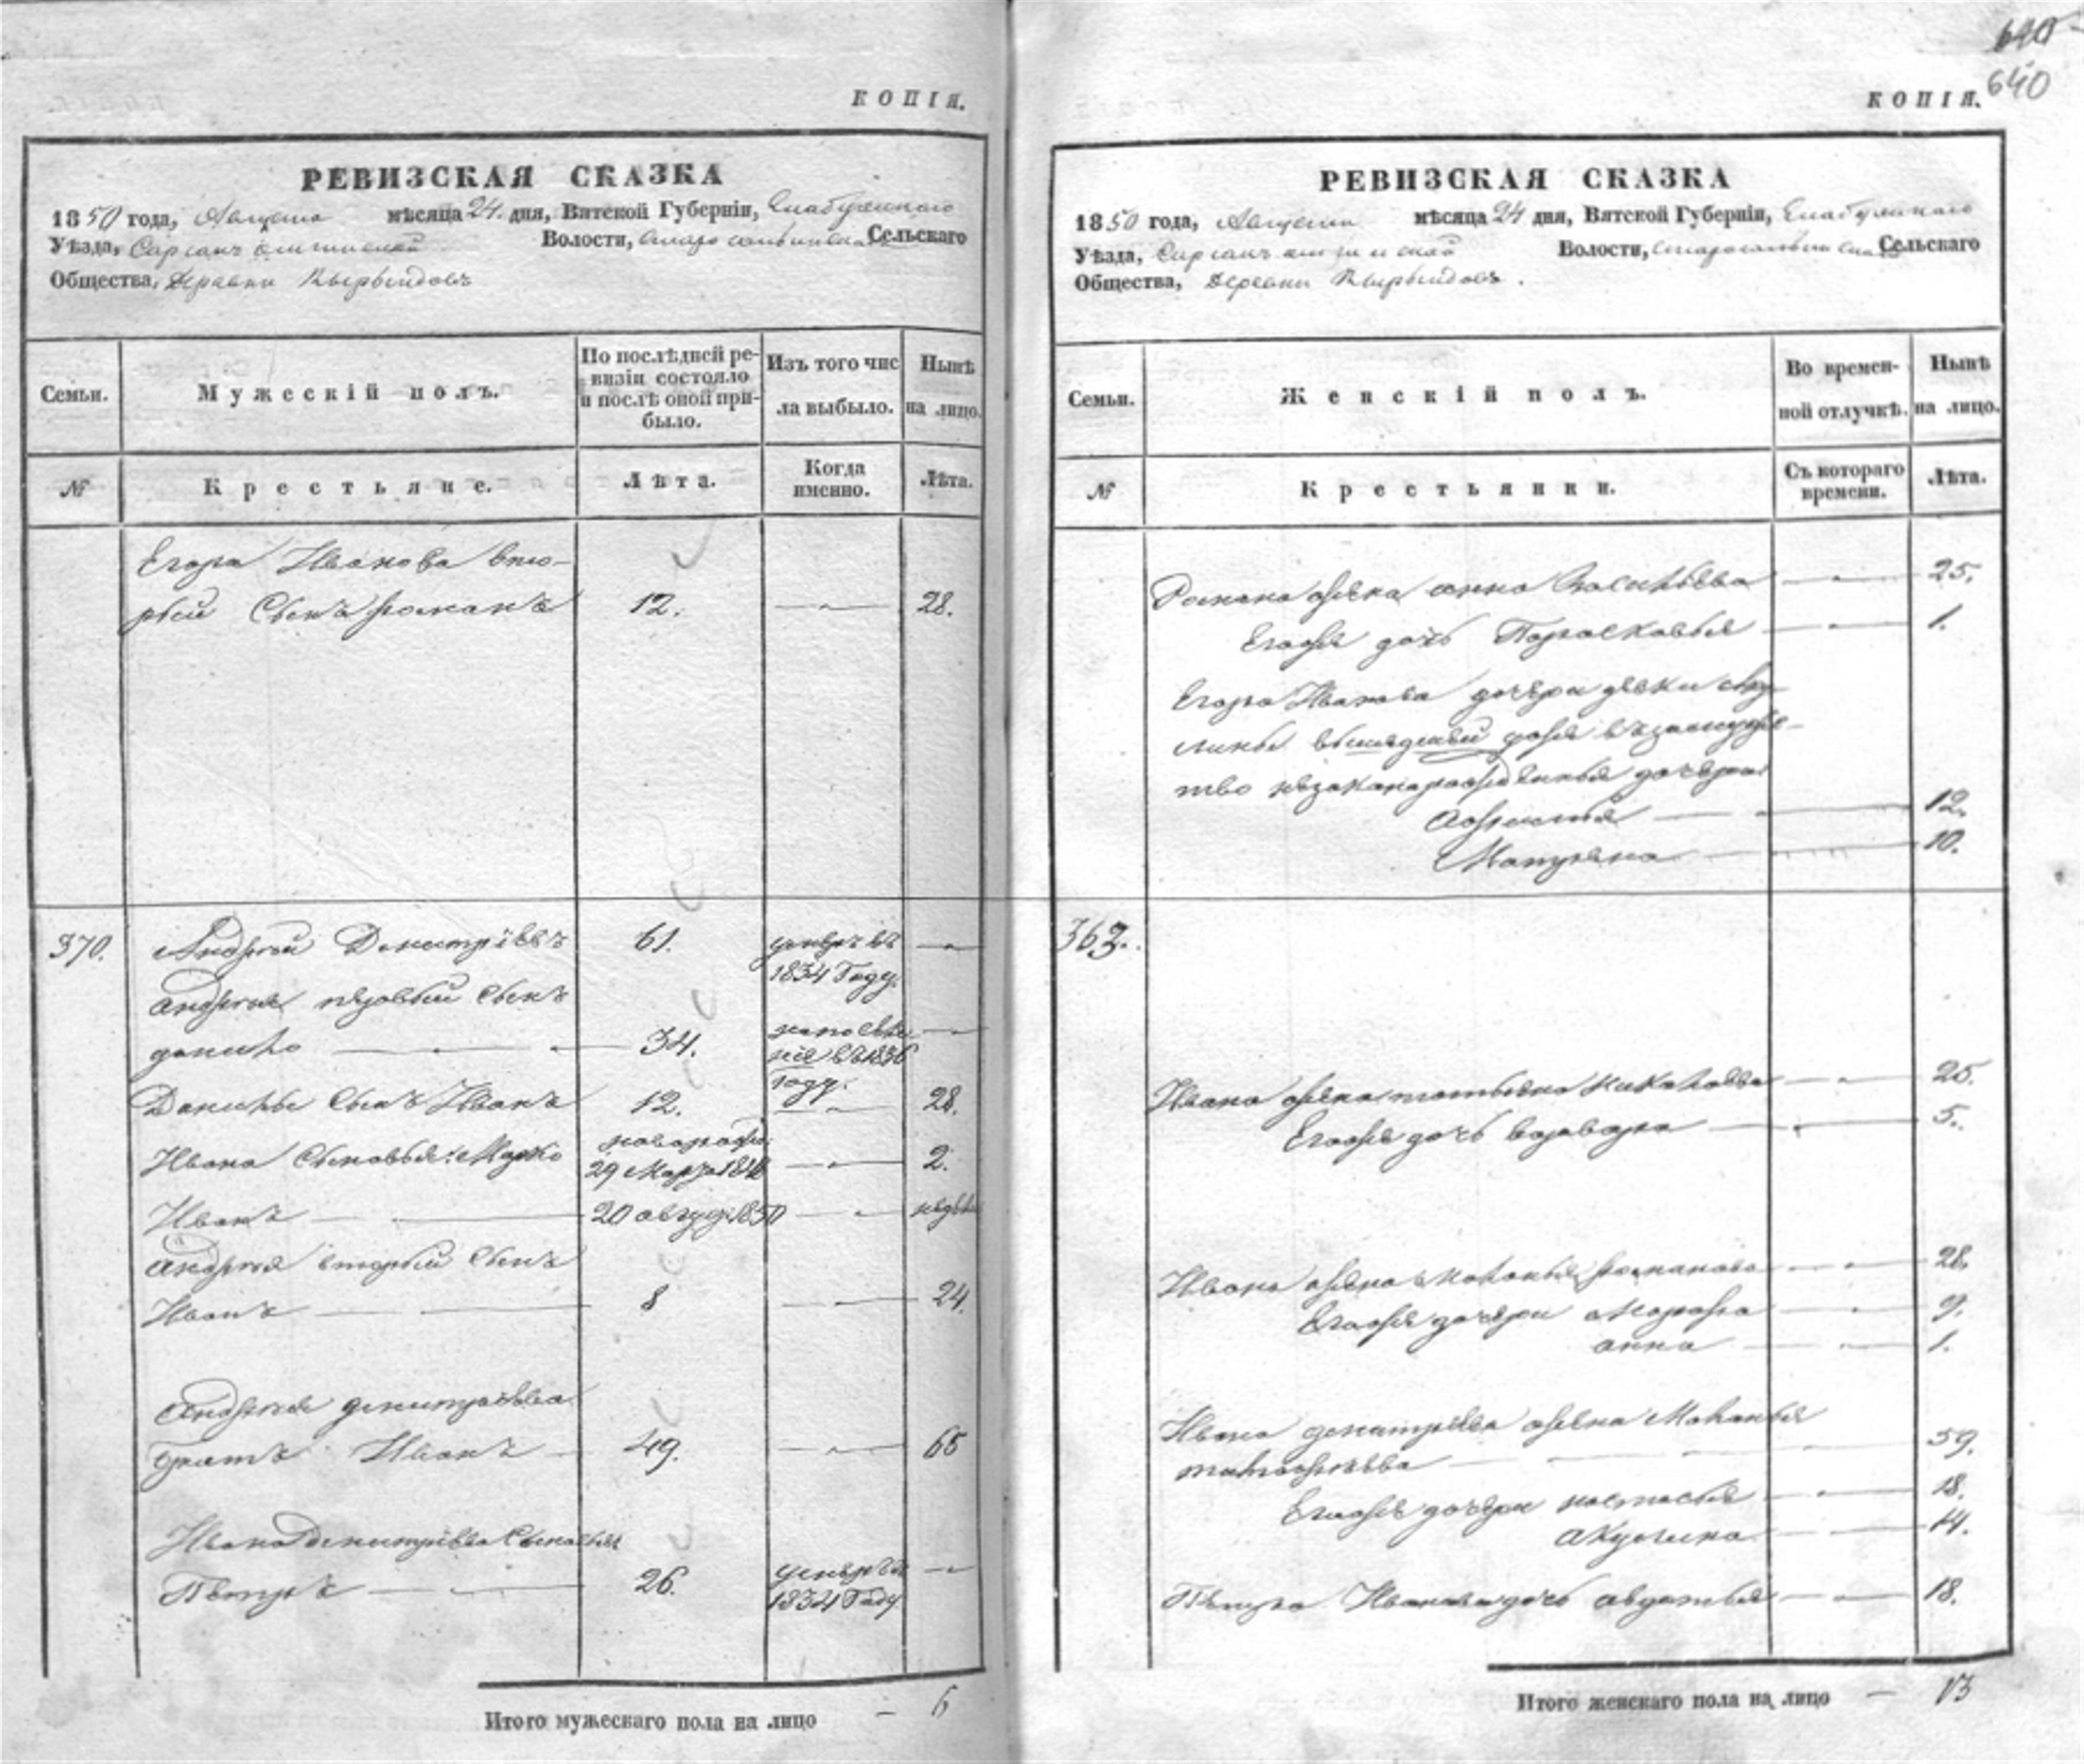 КОПІЯ.
РЕВИЗСКАЯ СКАЗКА
1850 года, Августа мѣсяца 24. дня, Вятской Губерніи, Елабужскаго
Уѣзда, Волости, Сельскаго
Общества, Деревни
Семьи.
Мужескій полъ.
По послѣдней ре-
визіи состояло
и послѣ оной при-
было.
Изъ того чис
ла выбыло.
Нынѣ
на лицо.
№
Крестьяне.
Лѣта.
Когда
именно.
Лѣта.
Егора Иванова вто-
рый Сынъ романъ 12. 28.
370. Андрей Дмитріевъ 61. умеръ въ
1834 Году.
Андрея первый Сынъ
данило 34. на поселе
ніе въ 1836
году.
Данилы Сынъ Иванъ 12. 28.
Ивана Сыновья: Марко новорожд:
29 Марта 1848 2.
Иванъ 20 август 1850 недел
Андрея вторый Сынъ
Иванъ 8 24.
Андрея дмитріева
братъ Иванъ 49. 65
Ивана дмитріева Сыновья
Петръ 26. умеръ въ
1834 Году
Итого мужескаго пола на лицо — 6
640
640
КОПІЯ.
РЕВИЗСКАЯ СКАЗКА
1850 года, Августа мѣсяца 24 дня, Вятской Губерніи, Елабужскаго
Уѣзда, Волости, Сельскаго
Общества, Деревни
Семьи.
Женскій полъ.
Во времен-
ной отлучкѣ.
Нынѣ
на лицо.
№
Крестьянки.
Съ котораго
времени.
Лѣта.
Романа жена анна Васильева 25.
Егоже дочь Парасковья 1.
Егора Иванова дочери девки Аку-
лины вышедшей уже въ замужес-
тво незаконорожденныя дочери:
12.
Матрена 10.
363.
Ивана жена татьяна Николаева 25.
Егоже дочь варвара 5.
Ивана жена Маланья романова 28.
Егоже дочери марфа 9.
анна 1.
Ивана дмитріева жена Маланья
тимофеева 59.
Егоже дочери настасья 18.
акулина 14.
Петра Иванова дочь авдотья 18.
Итого женскаго пола на лицо — 13